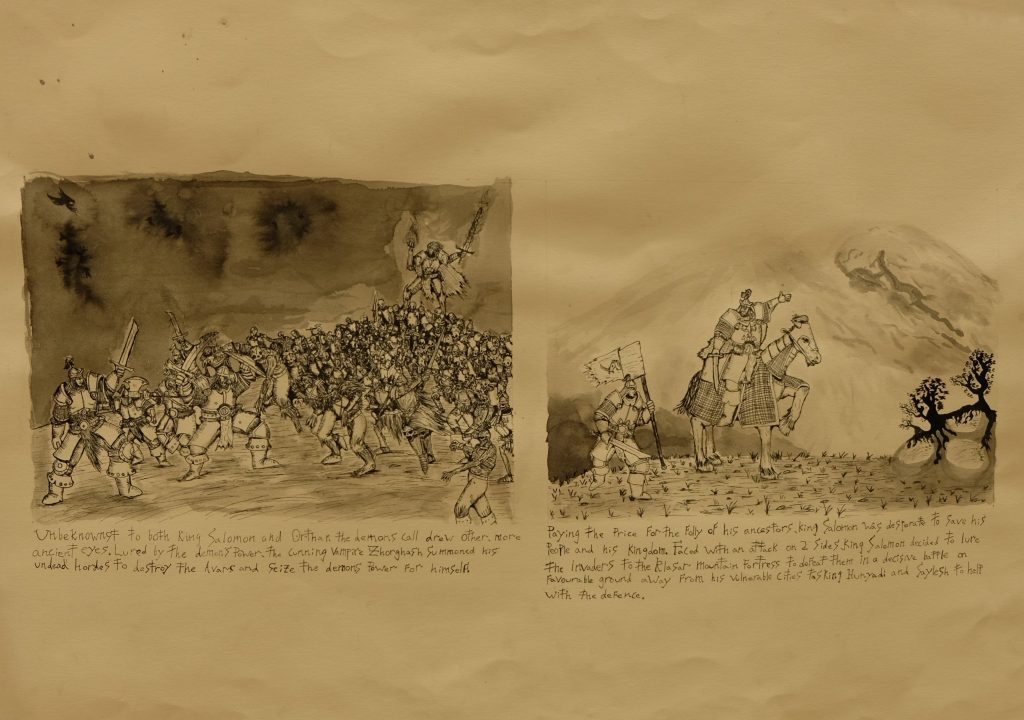 Unbeknownst to both King Salomon and Orthan the demons call drew other, more
ancient eyes. Lured by the demons Power, the cunning Vampire Zhorghash Summoned his
undead hordes to destroy the Avars and Seize the demons Power For himself.
Paying the Price For the Folly of his ancestors, King Salomon was desperate to save his
People and his Kingdom. Faced with an attack on 2 Sides, King Salomon decided to lure
the Invaders to the Klasar Mountain Fortress to defeat them in a decisive battle on
Favourable ground away From his Vulnerable Cities tasking Hunyadi and Saylesh to help
with the defence.